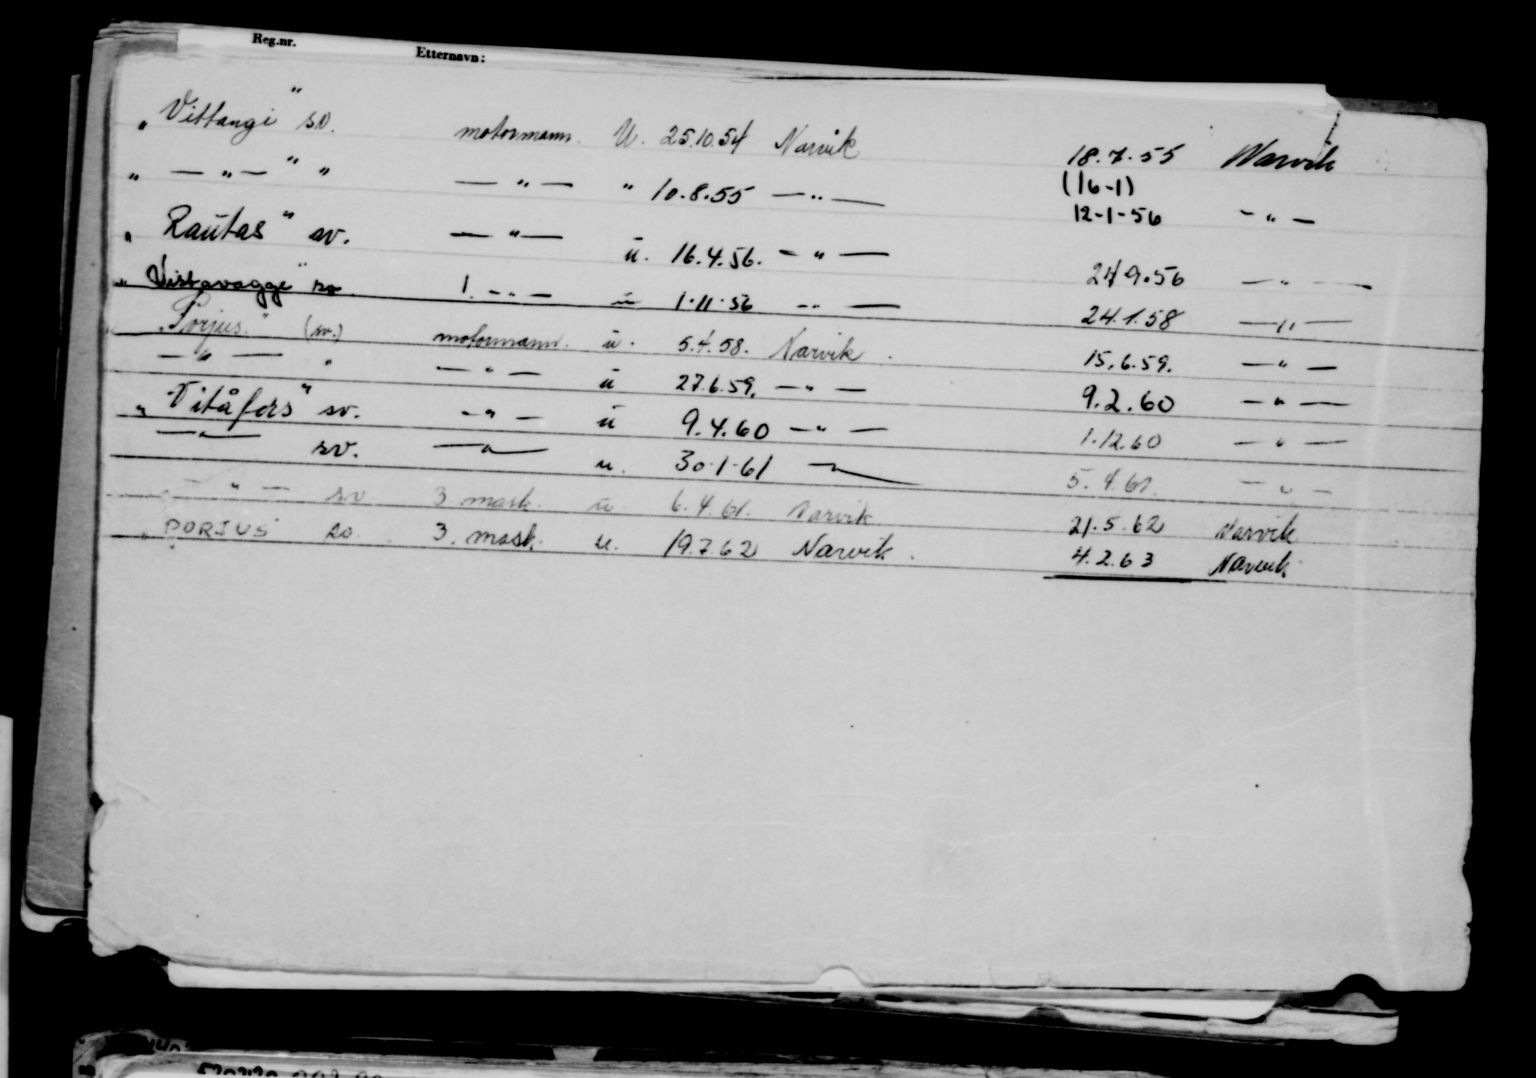 Reg.nr. Etternavn:
„Vittangi" sv. motormann. U. 25.10.54 Narvik 18.7.55 Narvik
„ — „ — " " — „ — " 10.8.55 — „ — (16-1) 12-1-56 — „ —
„Rautas" sv. — „ — u. 16.4.56. — „ — 24.9.56 — „ —
„Vistavagge" sv 1. — „ — u 1.11.56 „ — 24.1.58 — „ —
„Porjus." (sv.) motormann. u. 5.4.58. Narvik. 15.6.59. — „ —
— „ — " — „ — u 27.6.59. — „ — 9.2.60 — „ —
„Vitåfors" sv. — „ — u 9.4.60 — „ — 1.12.60 — „ —
— „ — sv. — „ — u. 30.1.61 — „ — 5.4.61. — „ —
— „ — sv. 3 mask. u. 6.4.61. Narvik 21.5.62 Narvik
„PORJUS" sv. 3. mask. u. 19.7.62 Narvik. 4.2.63 Narvik